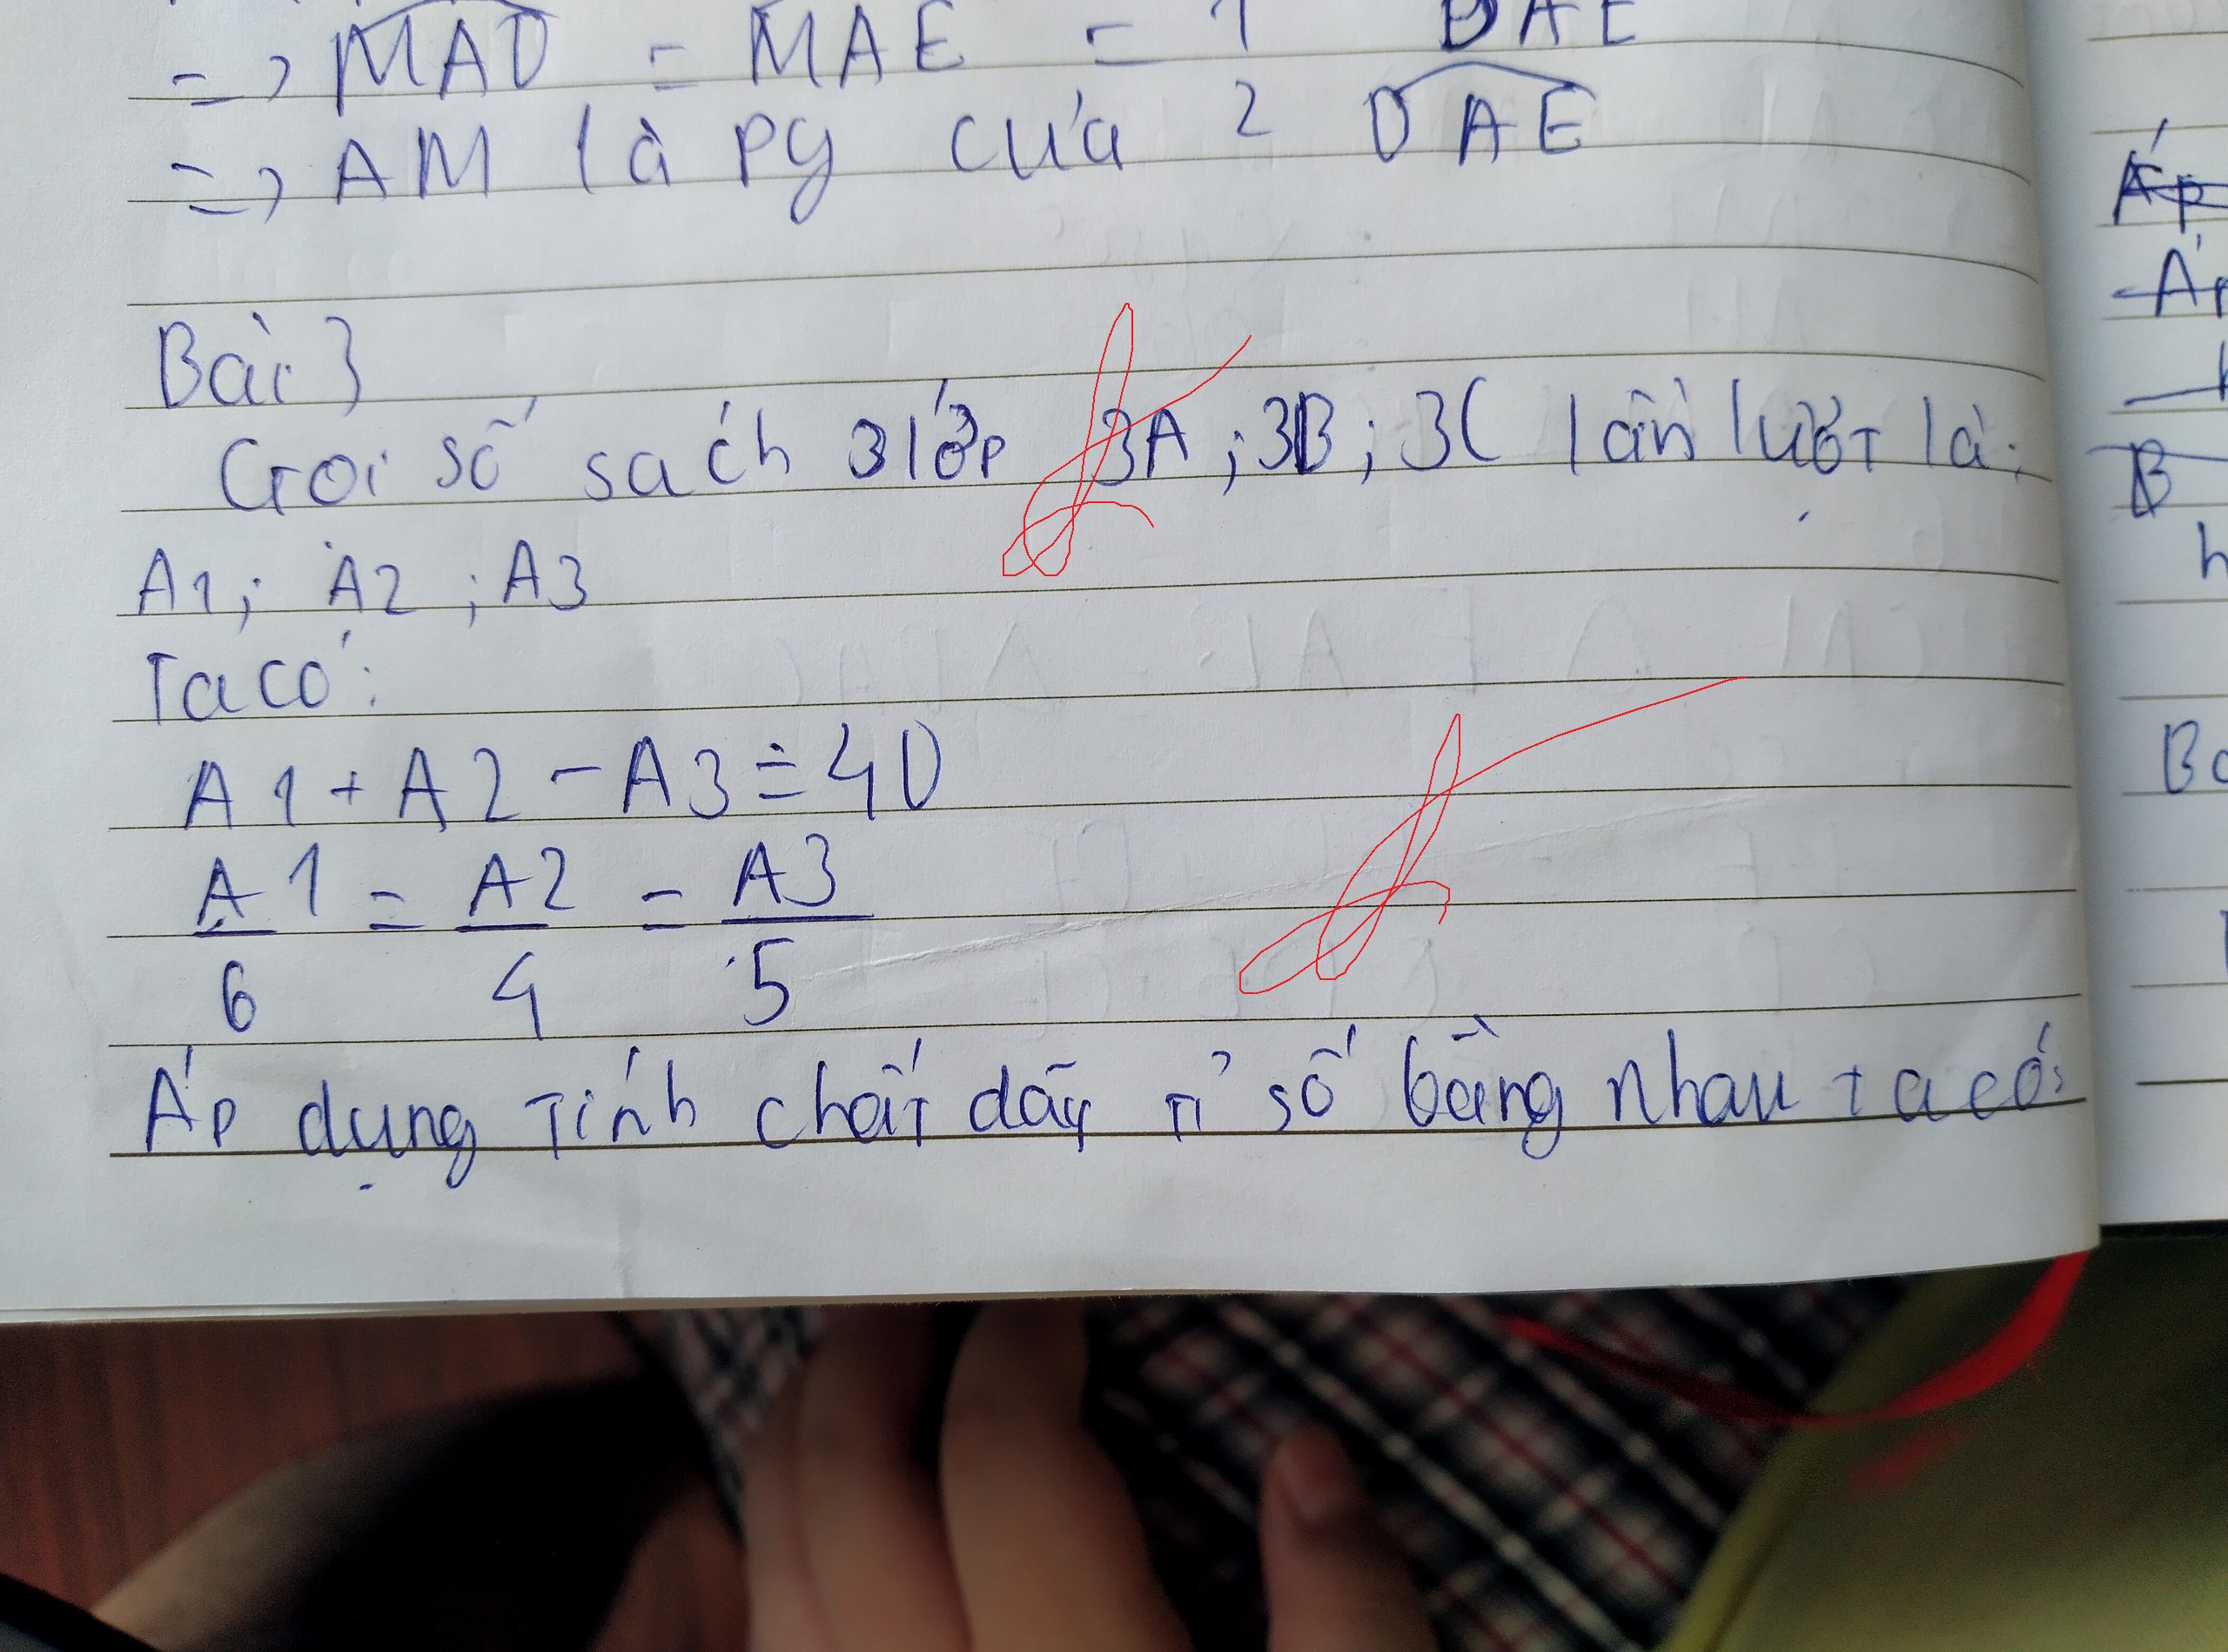 => MAD = MAE = 1 DAE
=> AM là pg của 2 DAE
Bài 3
Gọi số sách 3 lớp 3A; 3B; 3C lần lượt là:
A1; A2; A3
Ta có:
A1 + A2 - A3 = 40
A1 = A2 = A3
6 4 5
Áp dụng tính chất dãy tỉ số bằng nhau ta có:
Áp
Áp
B
h